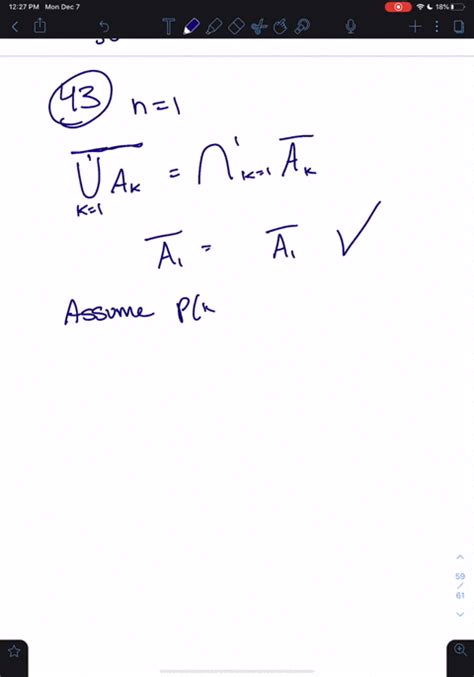 12:27 PM Mon Dec 7
18%
T
43 n=1
\overline{\bigcup_{k=1}^{1} A_k} = \bigcap_{k=1}^{1} \overline{A_k}
\overline{A_1} = \overline{A_1} ✓
Assume P(k
59
/
61